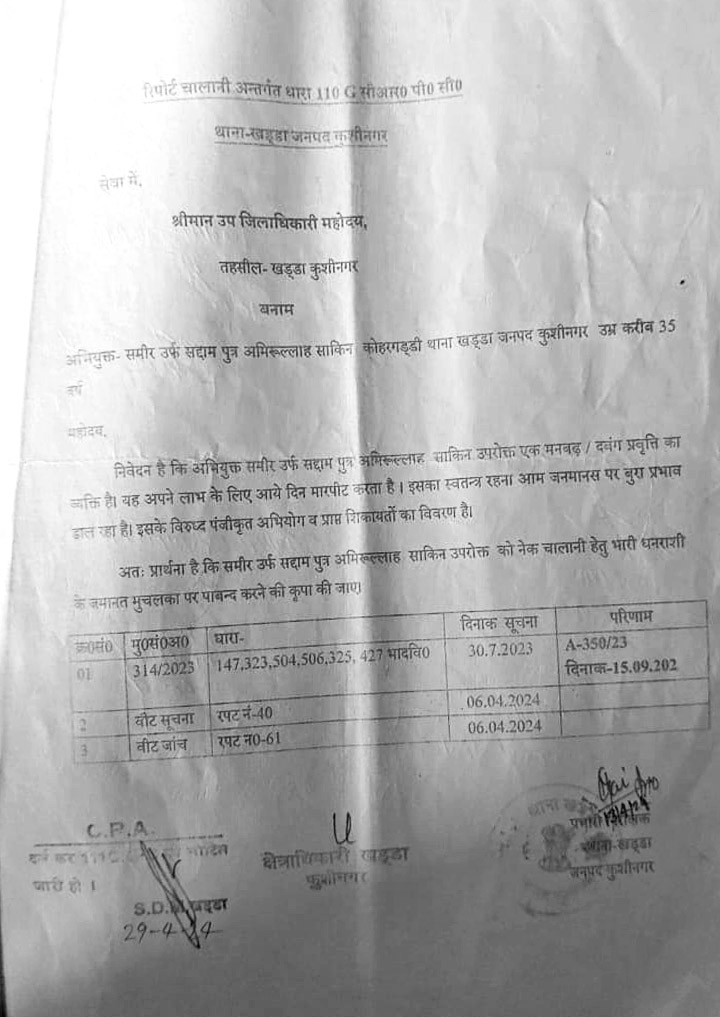 रिपोर्ट चालानी अन्तर्गत धारा 110 G सीआर0 पी0 सी0
थाना-खड्डा जनपद कुशीनगर
सेवा में,
श्रीमान उप जिलाधिकारी महोदय,
तहसील- खड्डा कुशीनगर
बनाम
अभियुक्त- समीर उर्फ सद्दाम पुत्र अमिरूल्लाह साकिन कोहरगड्डी थाना खड्डा जनपद कुशीनगर उम्र करीब 35
वर्ष
महोदय,
निवेदन है कि अभियुक्त समीर उर्फ सद्दाम पुत्र अमिरूल्लाह साकिन उपरोक्त एक मनबढ़ / दबंग प्रवृत्ति का
व्यक्ति है। यह अपने लाभ के लिए आये दिन मारपीट करता है । इसका स्वतन्त्र रहना आम जनमानस पर बुरा प्रभाव
डाल रहा है। इसके विरुध्द पंजीकृत अभियोग व प्राप्त शिकायतों का विवरण है।
अतः प्रार्थना है कि समीर उर्फ सद्दाम पुत्र अमिरूल्लाह साकिन उपरोक्त को नेक चालानी हेतु भारी धनराशी
के जमानत मुचलका पर पाबन्द करने की कृपा की जाए।
क्र0सं0 मु0सं0अ0 धारा- दिनाक सूचना परिणाम
01 314/2023 147,323,504,506,325, 427 भादवि0 30.7.2023 A-350/23
दिनाक-15.09.202
2 वीट सूचना रपट नं-40 06.04.2024
3 वीट जांच रपट न0-61 06.04.2024
C.P.A.
दर्ज कर 110
जारी हो ।
S.D.M. खड्डा
29-4-24
क्षेत्राधिकारी खड्डा
कुशीनगर
थाना
प्रभारी निरीक्षक
थाना-खड्डा
जनपद कुशीनगर